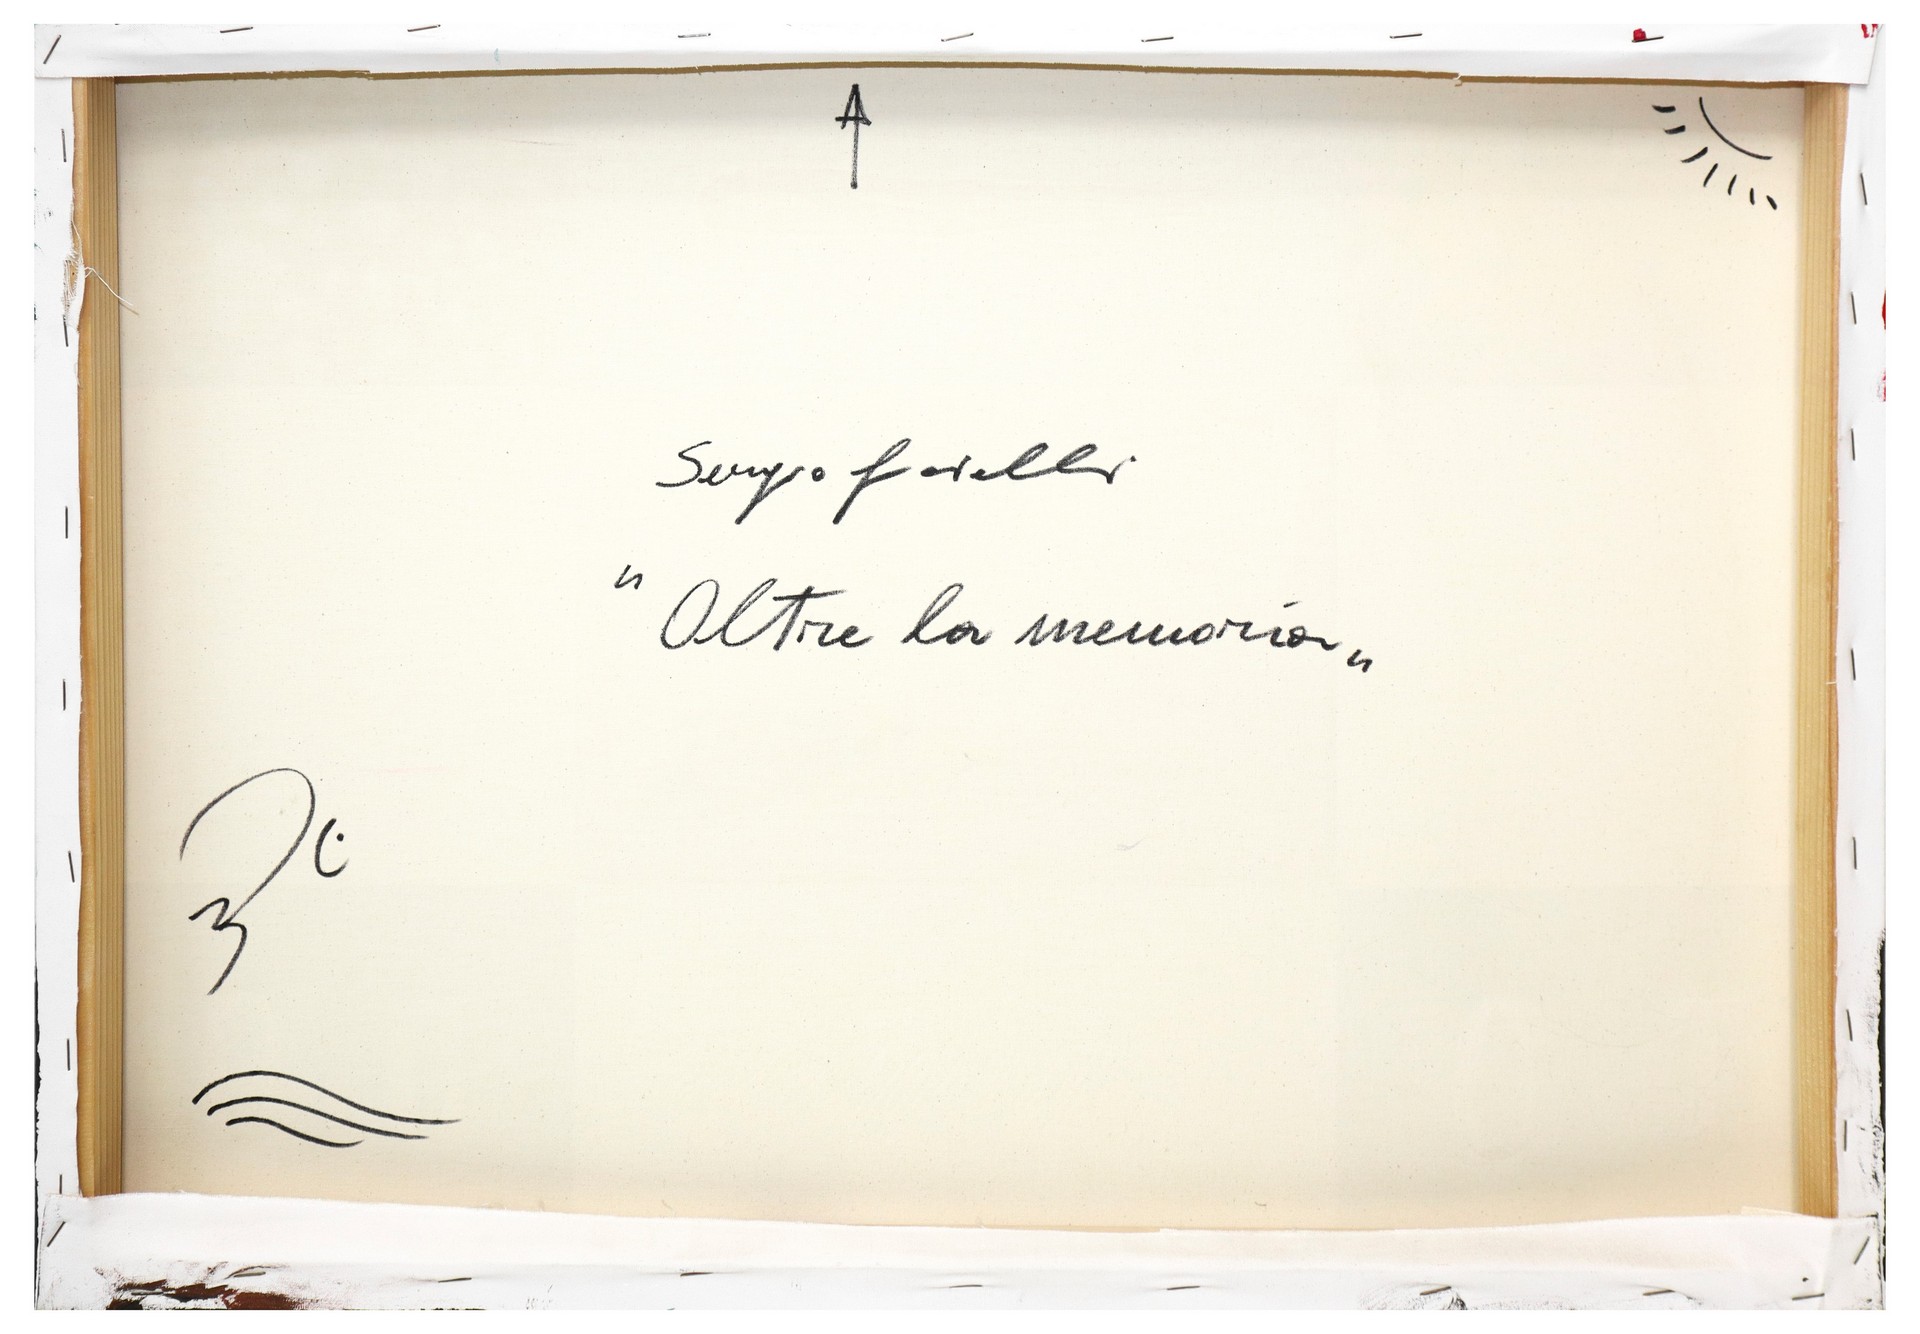 Sergio
"Oltre la memoria„